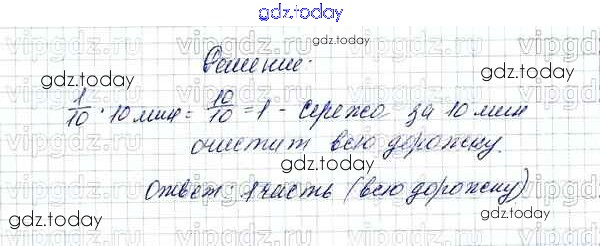 gdz.today
Решение.
1/10 · 10 мин = 10/10 = 1 - Сережа за 10 мин
очистит всю дорожку.
Ответ: 1 часть (всю дорожку)
gdz.today
gdz.today
gdz.today
gdz.today
gdz.today
gdz.today
gdz.today